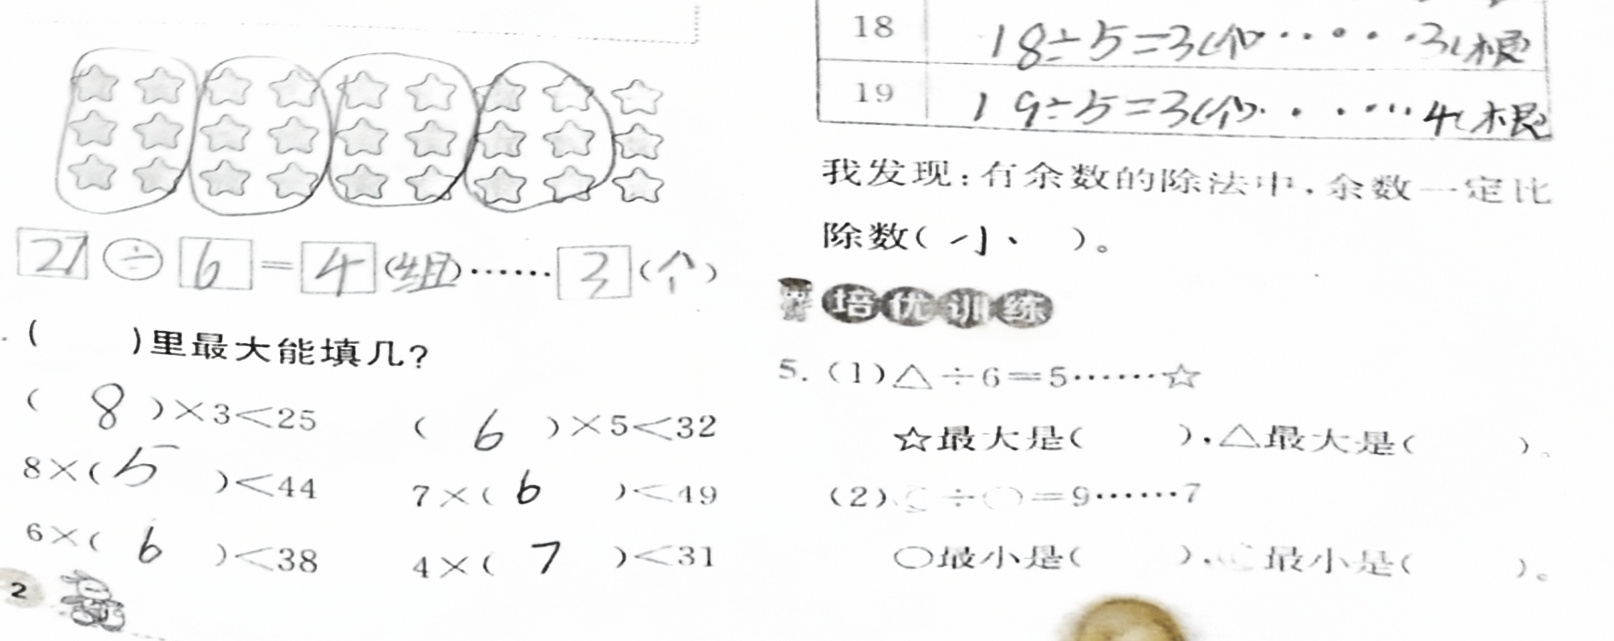 27÷6=4(组)……3(个)
( )里最大能填几?
( 8 )×3<25 ( 6 )×5<32
8×( 5 )<44 7×( 6 )<49
6×( 6 )<38 4×( 7 )<31
2
18 18÷5=3(个……3(根
19 19÷5=3(个……4(根
我发现:有余数的除法中,余数一定比
除数( 小、 )。
培优训练
5.(1)△÷6=5……☆
☆最大是( ),△最大是( )。
(2) ÷○=9……7
○最小是( ), 最小是( )。